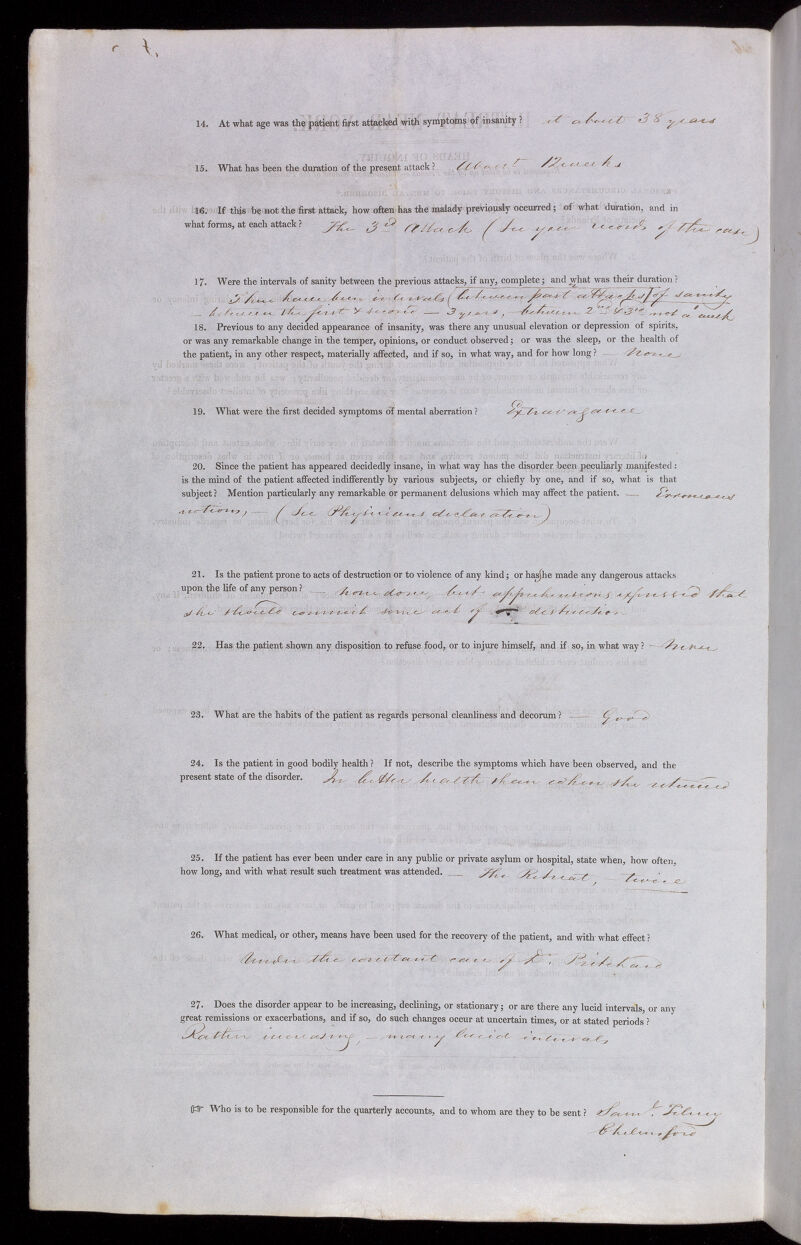 14. At what age was the patient first attacked with symptoms of insanity? at about 38 years
15. What has been the duration of the present attack? About 12 weeks
16. If this be not the first attack, how often has the malady previously occurred; of what duration, and in
what forms, at each attack? The 3rd Attack (See your records of the case)
17. Were the intervals of sanity between the previous attacks, if any, complete; and what was their duration?
There have been intervals (between past attacks) of sanity
— between the first & second — 3 years, between 2nd & 3rd not a
18. Previous to any decided appearance of insanity, was there any unusual elevation or depression of spirits,
or was any remarkable change in the temper, opinions, or conduct observed; or was the sleep, or the health of
the patient, in any other respect, materially affected, and if so, in what way, and for how long? — None
19. What were the first decided symptoms of mental aberration? Extravagance
20. Since the patient has appeared decidedly insane, in what way has the disorder been peculiarly manifested:
is the mind of the patient affected indifferently by various subjects, or chiefly by one, and if so, what is that
subject? Mention particularly any remarkable or permanent delusions which may affect the patient. — Erroneous
notions, — (See Physicians declaration)
21. Is the patient prone to acts of destruction or to violence of any kind; or has she made any dangerous attacks
upon the life of any person? — none done, but apprehensions expressed that
she should commit some act of destruction
22. Has the patient shown any disposition to refuse food, or to injure himself, and if so, in what way? — Never
23. What are the habits of the patient as regards personal cleanliness and decorum? — Good
24. Is the patient in good bodily health? If not, describe the symptoms which have been observed, and the
present state of the disorder. In better health than when she returned
25. If the patient has ever been under care in any public or private asylum or hospital, state when, how often,
how long, and with what result such treatment was attended. — The Retreat, twice
26. What medical, or other, means have been used for the recovery of the patient, and with what effect?
Under the constant care of Dr. Pritchard
27. Does the disorder appear to be increasing, declining, or stationary; or are there any lucid intervals, or any
great remissions or exacerbations, and if so, do such changes occur at uncertain times, or at stated periods?
Rather increasing, — many lucid intervals
☞ Who is to be responsible for the quarterly accounts, and to whom are they to be sent? Saml. Tilney
Chelmsford